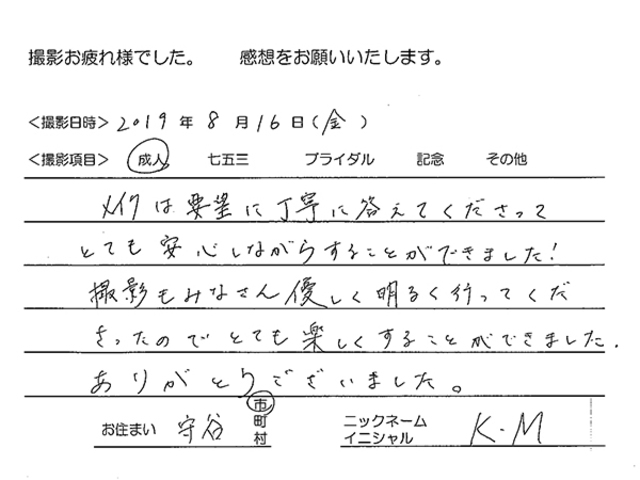 撮影お疲れ様でした。 感想をお願いいたします。
<撮影日時> 2019 年 8 月 16 日 (金)
<撮影項目> 成人 七五三 ブライダル 記念 その他
メイクは要望に丁寧に答えてくださって
とても安心しながらすることができました!
撮影もみなさん優しく明るく行ってくだ
さったのでとても楽しくすることができました.
ありがとうございました。
お住まい 守谷 市 町 村 ニックネーム イニシャル K.M